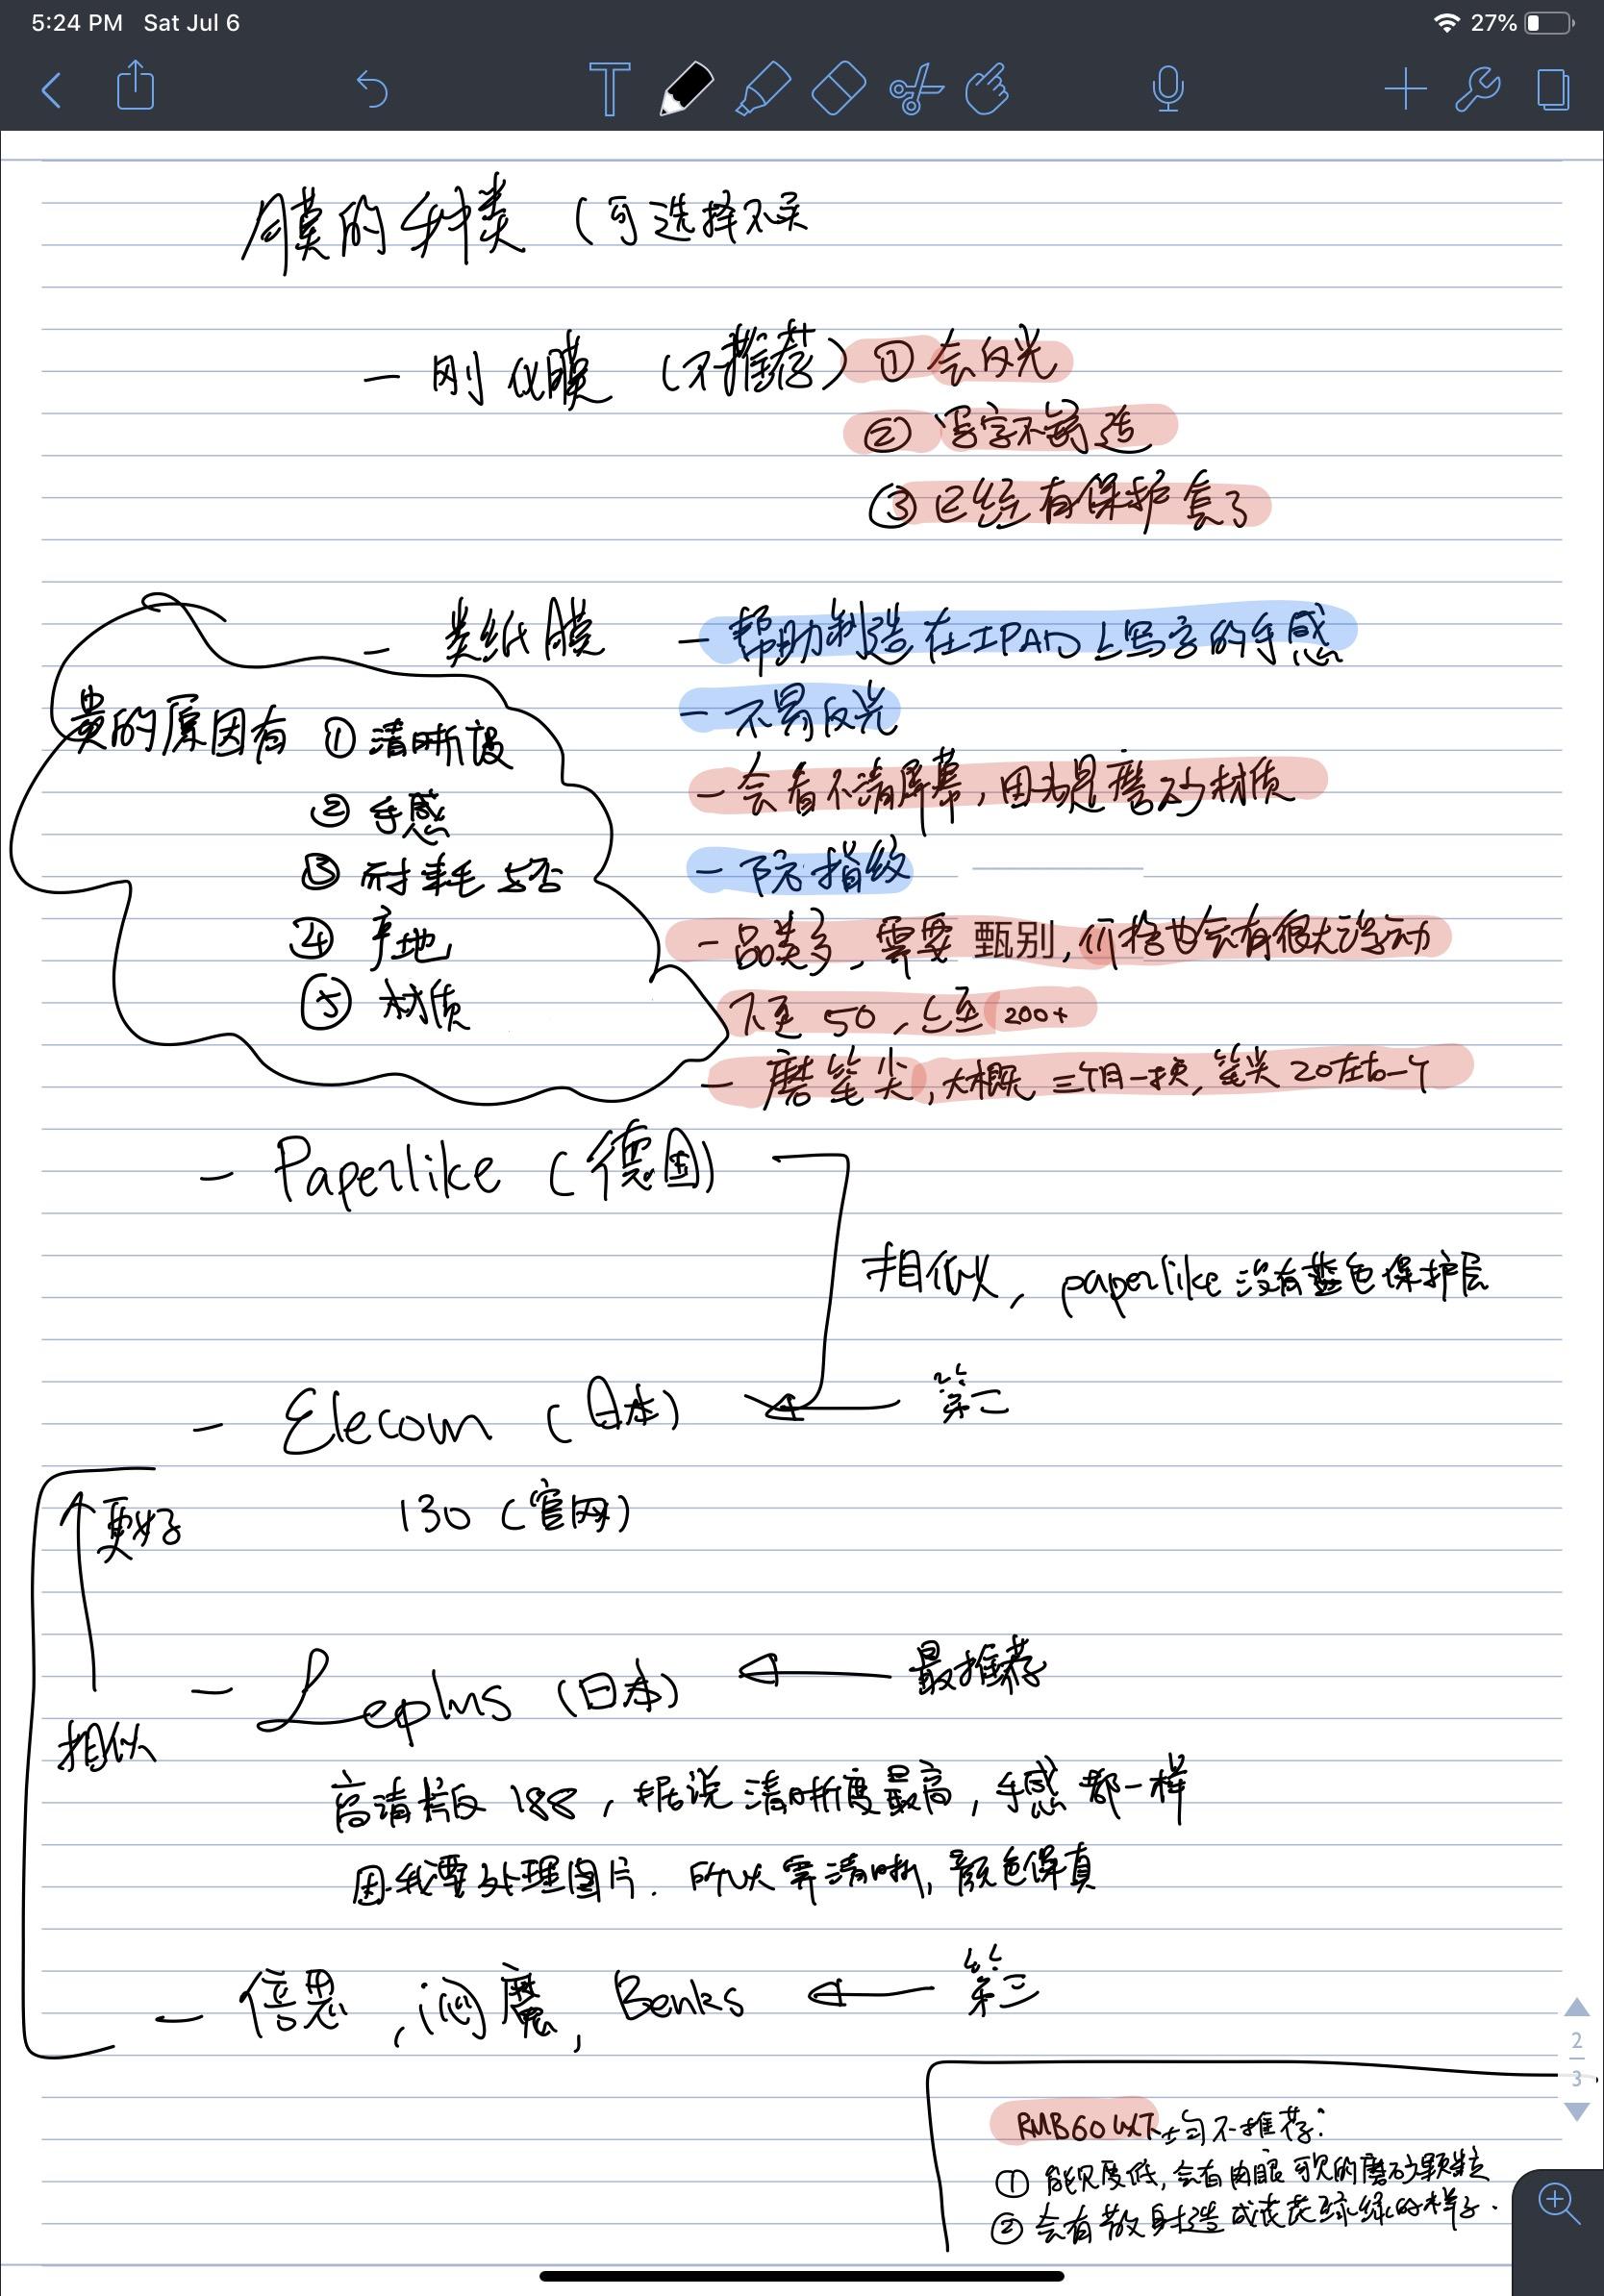 5:24 PM Sat Jul 6
27%
膜的种类（可选择不买
一 刚化膜（不推荐）① 会反光
② 写字不舒适
③ 已经有保护套了
一 类纸膜
一 帮助制造在IPAD上写字的手感
一 不易反光
一 会看不清屏幕，因为是磨砂材质
一 防指纹
一 品类多，需要甄别，价格也会有很大浮动
下至 50，上至 200+
一 磨笔尖，大概三个月一换，笔尖20左右一个
贵的原因有 ① 清晰度
② 手感
③ 耐耗与否
④ 产地
⑤ 材质
一 Paperlike（德国）
相似，paperlike 没有蓝色保护层
一 Elecom（日本）
第二
130（官网）
更好
相似
一 Leplus（日本）
最推荐
高清版 188，据说清晰度最高，手感都一样
因我要处理图片．所以需清晰，颜色保真
一 倍思，闪魔，Benks
第三
RMB60以下均不推荐：
① 能见度低，会有肉眼可见的磨砂颗粒
② 会有散射造成花花绿绿的样子．
2
3